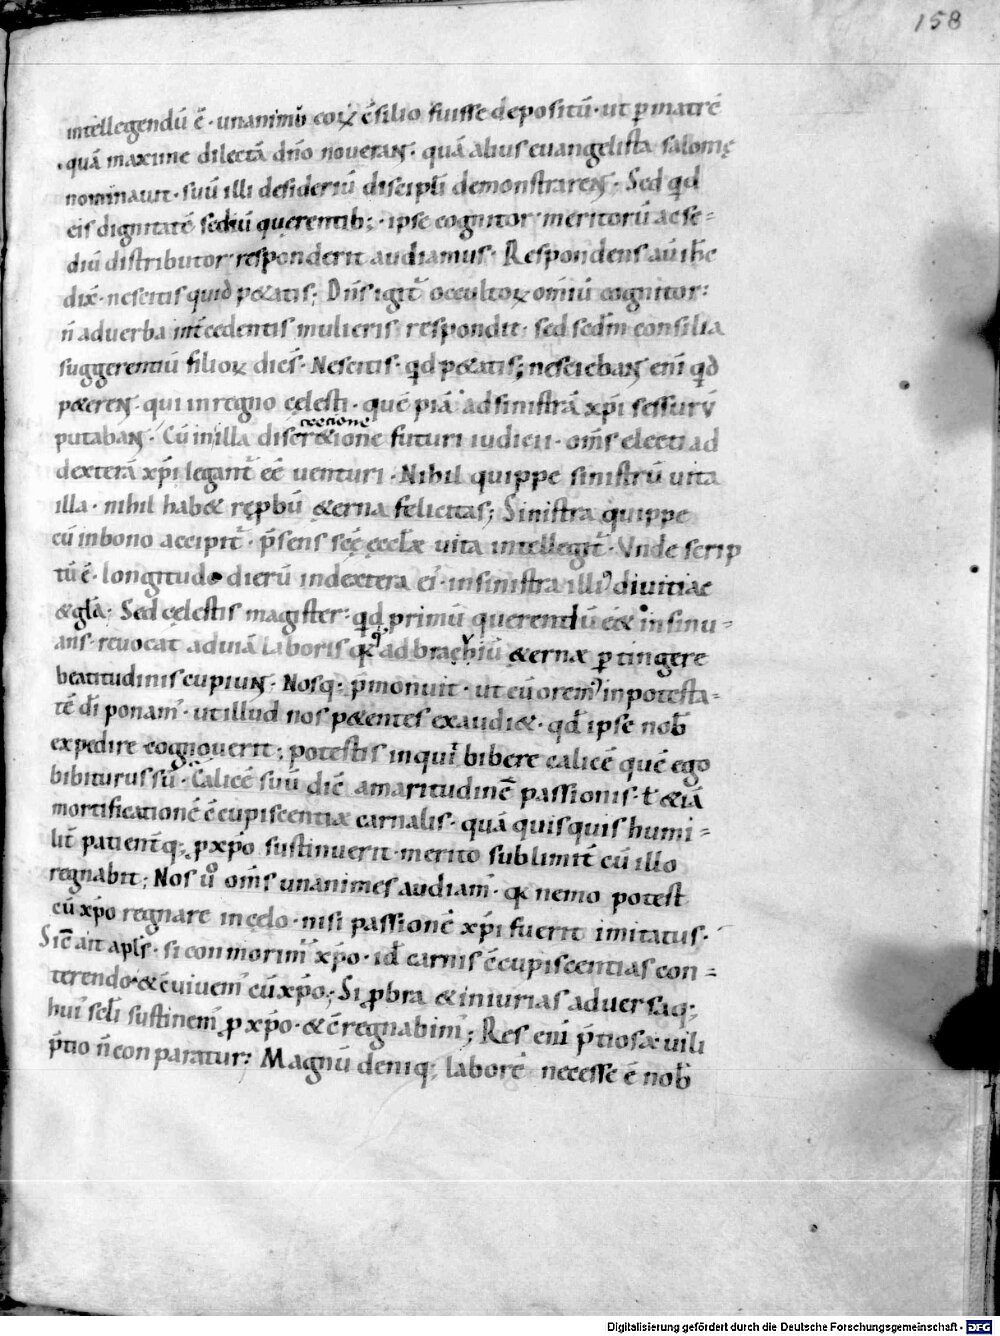 158
intellegendū ē · unanimū eoꝝ c̄silio fuisse depositū · ut ꝑ matrē
quā maxime dilectā dn̄o noveran̄t · quā alius euangelista salomę
nominauit · suū illi desideriū discipl̄i demonstraren̄t · Sed qđ
eis dignitatē sediū querentib; · ipse cognitor meritorū ac se=
diū distributor responderit audiamus · Respondens aū ih̄c
dix̄ · nescitis quid p&atis; Dn̄s igit̄ occultoꝝ om̄iū cognitor:
n̄ ad uerba int̄cedentis mulieris respondit · sed sed̄m consilia
suggerentiū filioꝝ dic̄s · Nescitis · qđ p&atis; nesciebaɴ̄t eni qđ
p&ereɴ̄t · qui in regno cęlesti · quē piā ad sinistrā xp̄i sessurū
putabaɴ̄t · Cū in illa discr&ione futuri iudicii · om̄s electi ad
dexterā xp̄i legant̄ eē uenturi · Nihil quippe sinistrū uita
illa · nihil hab& rępbū &erna felicitas; Sinistra quippe
cū in bono accipit̄ · p̄sens sc̄ę ęccl̄æ uita intellegit̄ · Vnde scrip
tū ē · longitudo dierū in dextera ei' · in sinistra illi' diuitiae
& gl̄a; Sed cęlestis magister · qđ primū querentiū ē& insinu=
ans · reuocat ad uiā laboris ad &ernæ ꝑtingere
beatitudinis cupiuɴ̄t · Nosq; p̄monuit · ut cū orem' in potesta=
tē dī ponam' · ut illud nos p&entes exaudi& · qđ ipse nob̄
expedire cognouerit; potestis inquit bibere calicē quē ego
bibiturus sū · Calicē suū dic̄ amaritudinē passionis · ł &iā
mortificationē c̄cupiscentiæ carnalis · quā quisquis humi=
lit̄ patient̄q; ꝑ xp̄o sustinuerit · merito sublimit̄ cū illo
regnabit; Nos ū om̄s unanimes audiam' · nemo potest
cū xp̄o regnare in cęlo · nisi passionē xp̄i fuerit imitatus ·
Sic̄ ait apl̄s · si con morim' xp̄o · id̄ carnis c̄cupiscentias con=
terendo · & c̄uiuem' cū xp̄o; Si ꝓbra & iniurias aduersaq;
hui' scl̄i sustinem' ꝓ xp̄o · & c̄regnabim'; Res eni p̄tiosæ uili
p̄tio n̄ con paratur: Magnū deniq; laborē necesse ē nob̄
Digitalisierung gefördert durch die Deutsche Forschungsgemeinschaft - DFG